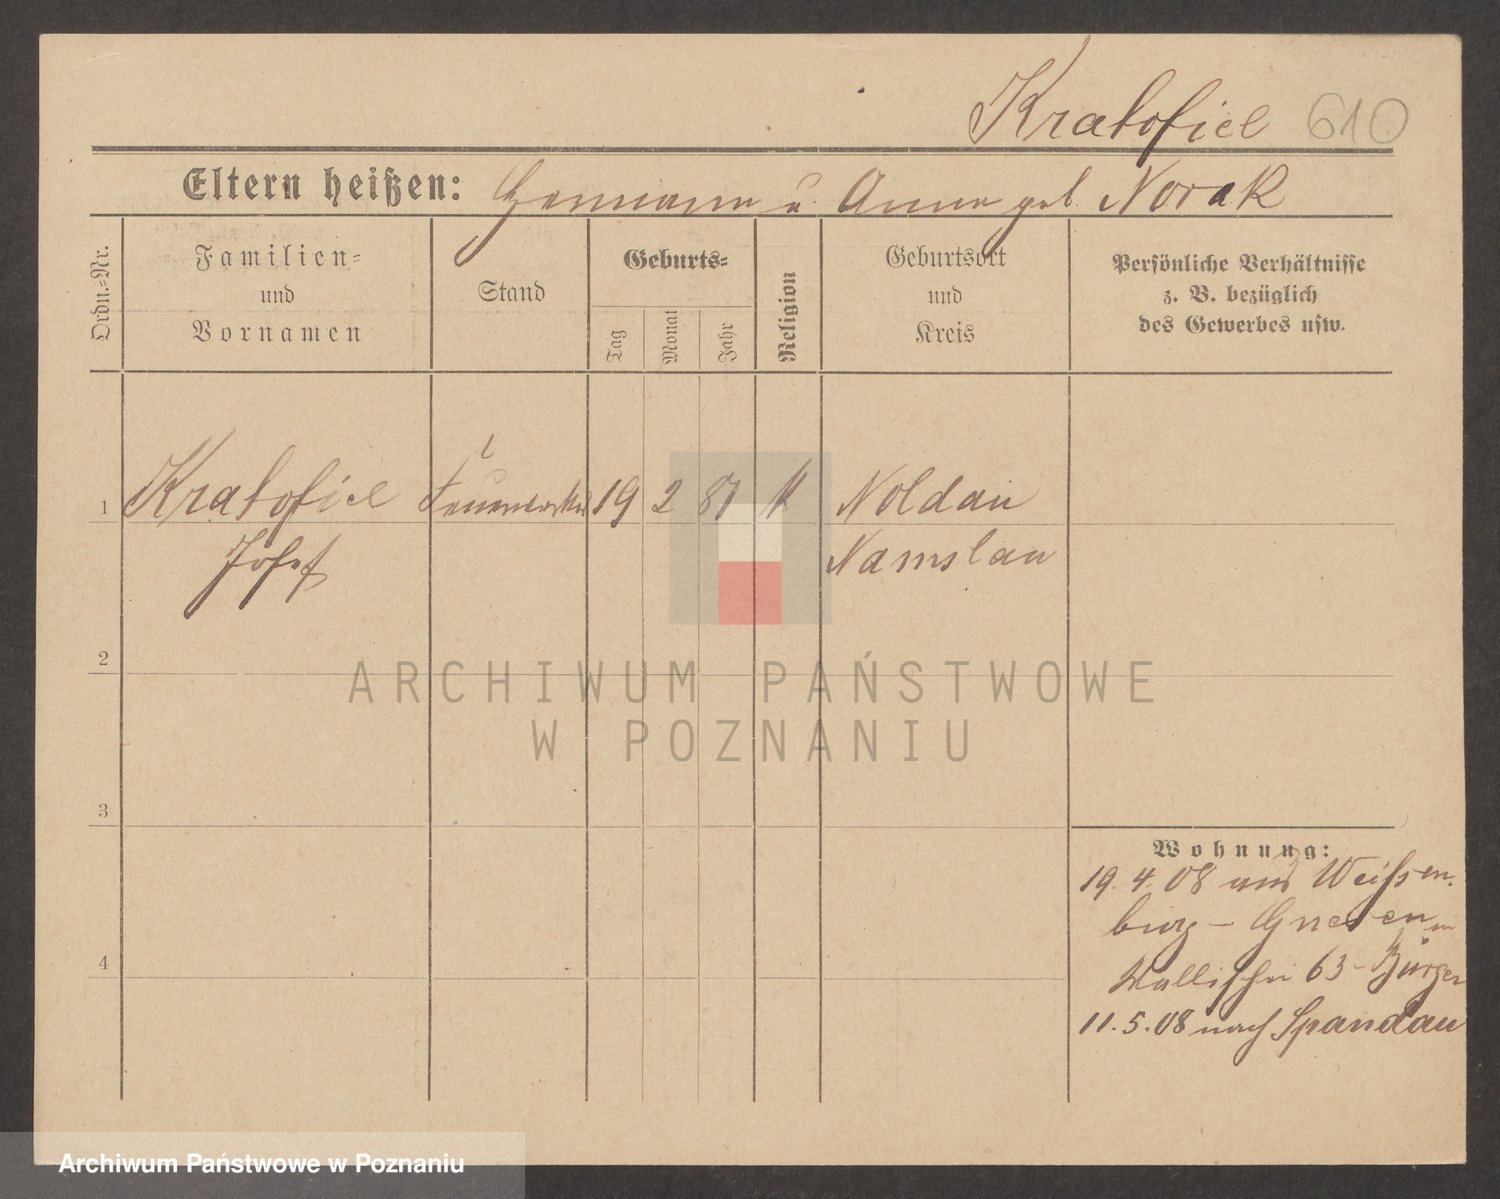 Kratofiel 610
Eltern heißen: Hermann u. Anna geb. Novak
Ordn.-Nr.
Familien-
und
Vornamen
Stand
Geburts-
Tag
Monat
Jahr
Religion
Geburtsort
und
Kreis
Persönliche Verhältnisse
z. B. bezüglich
des Gewerbes usw.
1 Kratofiel 19 2 81 k Noldau
Josef Namslau
2
ARCHIWUM PAŃSTWOWE
W POZNANIU
3
Wohnung:
19.4.08 aus Weißen-
burg - Gnesen
Wallischei 63 - Bürger
4
11.5.08 nach Spandau
Archiwum Państwowe w Poznaniu